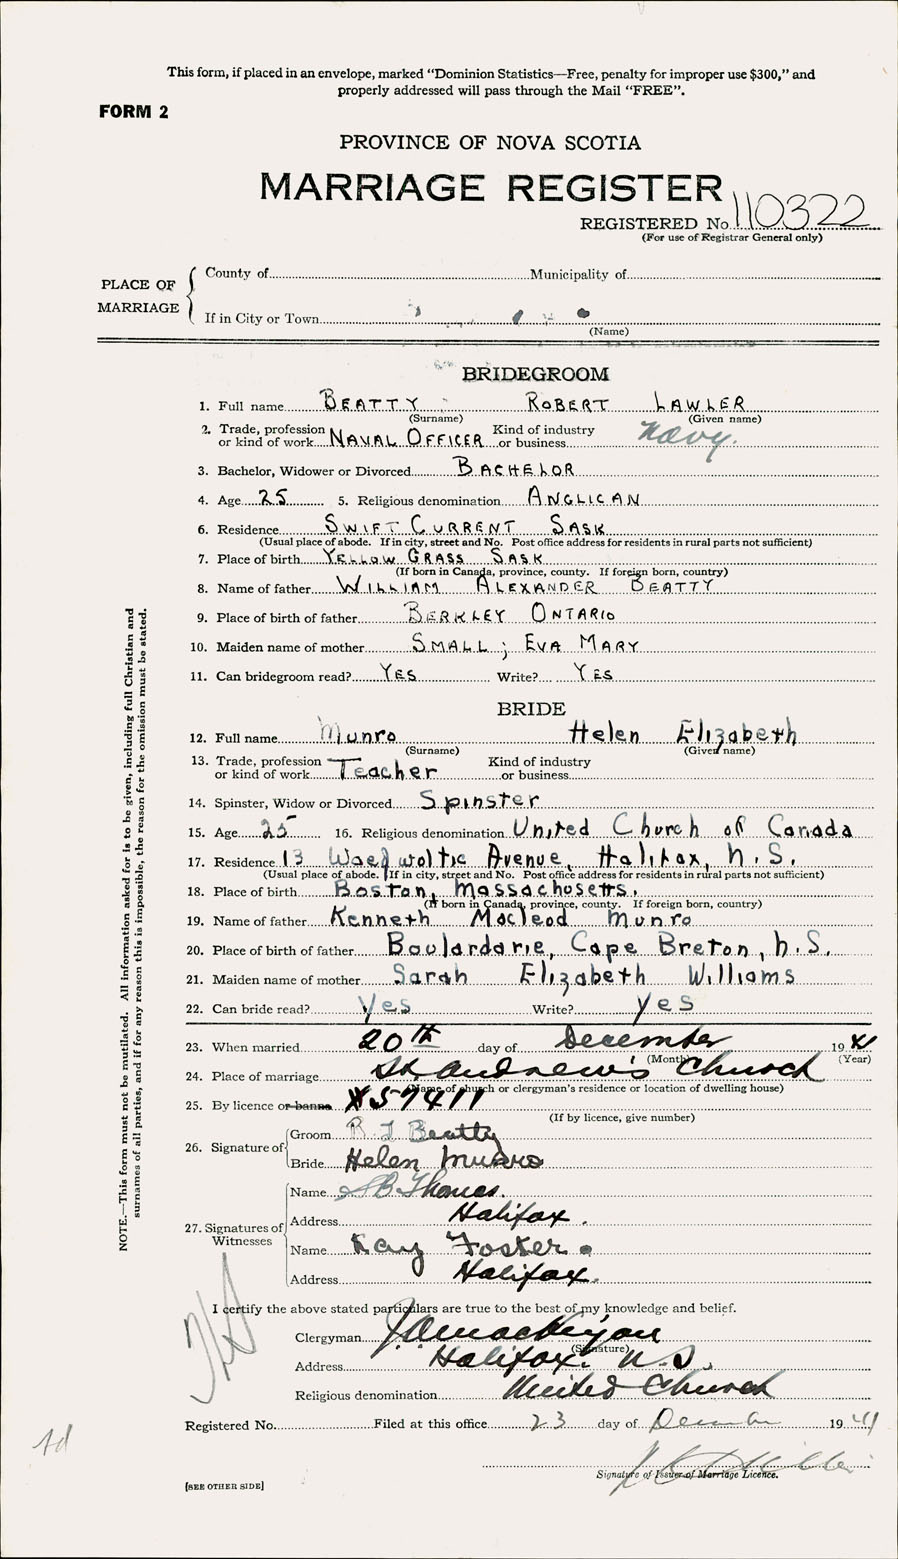 This form, if placed in an envelope, marked "Dominion Statistics—Free, penalty for improper use $300," and
properly addressed will pass through the Mail "FREE".
FORM 2
PROVINCE OF NOVA SCOTIA
MARRIAGE REGISTER
REGISTERED No. 110322
(For use of Registrar General only)
PLACE OF MARRIAGE
County of Municipality of
If in City or Town
(Name)
BRIDEGROOM
1. Full name BEATTY ROBERT LAWLER
(Surname) (Given name)
2. Trade, profession or kind of work NAVAL OFFICER Kind of industry or business Navy.
3. Bachelor, Widower or Divorced BACHELOR
4. Age 25 5. Religious denomination ANGLICAN
6. Residence SWIFT CURRENT SASK
(Usual place of abode. If in city, street and No. Post office address for residents in rural parts not sufficient)
7. Place of birth YELLOW GRASS SASK
(If born in Canada, province, county. If foreign born, country)
8. Name of father WILLIAM ALEXANDER BEATTY
9. Place of birth of father BERKLEY ONTARIO
10. Maiden name of mother SMALL; EVA MARY
11. Can bridegroom read? YES Write? YES
BRIDE
12. Full name Munro Helen Elizabeth
(Surname) (Given name)
13. Trade, profession or kind of work Teacher Kind of industry or business
14. Spinster, Widow or Divorced Spinster
15. Age 25 16. Religious denomination United Church of Canada
17. Residence 13 Avenue, Halifax, N.S.
(Usual place of abode. If in city, street and No. Post office address for residents in rural parts not sufficient)
18. Place of birth Boston, Massachusetts.
(If born in Canada, province, county. If foreign born, country)
19. Name of father Kenneth Macleod Munro
20. Place of birth of father Boulardarie, Cape Breton, N.S.
21. Maiden name of mother Sarah Elizabeth Williams
22. Can bride read? Yes Write? yes
23. When married 20th day of December 1941
(Month) (Year)
24. Place of marriage St. Andrew's Church
(Name of church or clergyman's residence or location of dwelling house)
25. By licence or banns X57411
(If by licence, give number)
26. Signature of
Groom R L Beatty
Bride Helen Munro
27. Signatures of Witnesses
Name Thomas.
Address Halifax.
Name Kay Foster.
Address Halifax.
I certify the above stated particulars are true to the best of my knowledge and belief.
Clergyman
(Signature)
Address Halifax. N.S.
Religious denomination United Church
Registered No. Filed at this office 23 day of December 1941
Signature of Issuer of Marriage Licence.
[SEE OTHER SIDE]
NOTE.—This form must not be mutilated. All information asked for is to be given, including full Christian and
surnames of all parties, and if for any reason this is impossible, the reason for the omission must be stated.